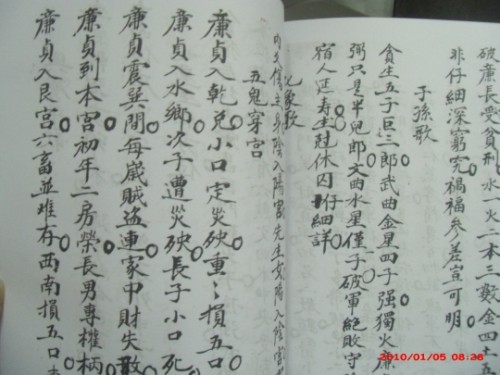 破廉長受貧刑水一火二木三數金四土五
非仔細深窮究禍福參差豈可明
子孫歌
貪生五子巨三郎武曲金星四子强獨火廉
弼只是半兒郎文曲水星僅子破軍絕敗守
宿人延寿生冦休囚仔細詳
五鬼穿宮
廉貞入乾兌小口定災殃重〻損五口
廉貞入水鄉次子遭災殃長子小口死
廉貞震巽間每歲賊盜連家中財失散
廉貞到本宮初年二房榮長男專權柄
廉貞入艮宮六畜並堆存西南損五口
2010/01/05 08:28